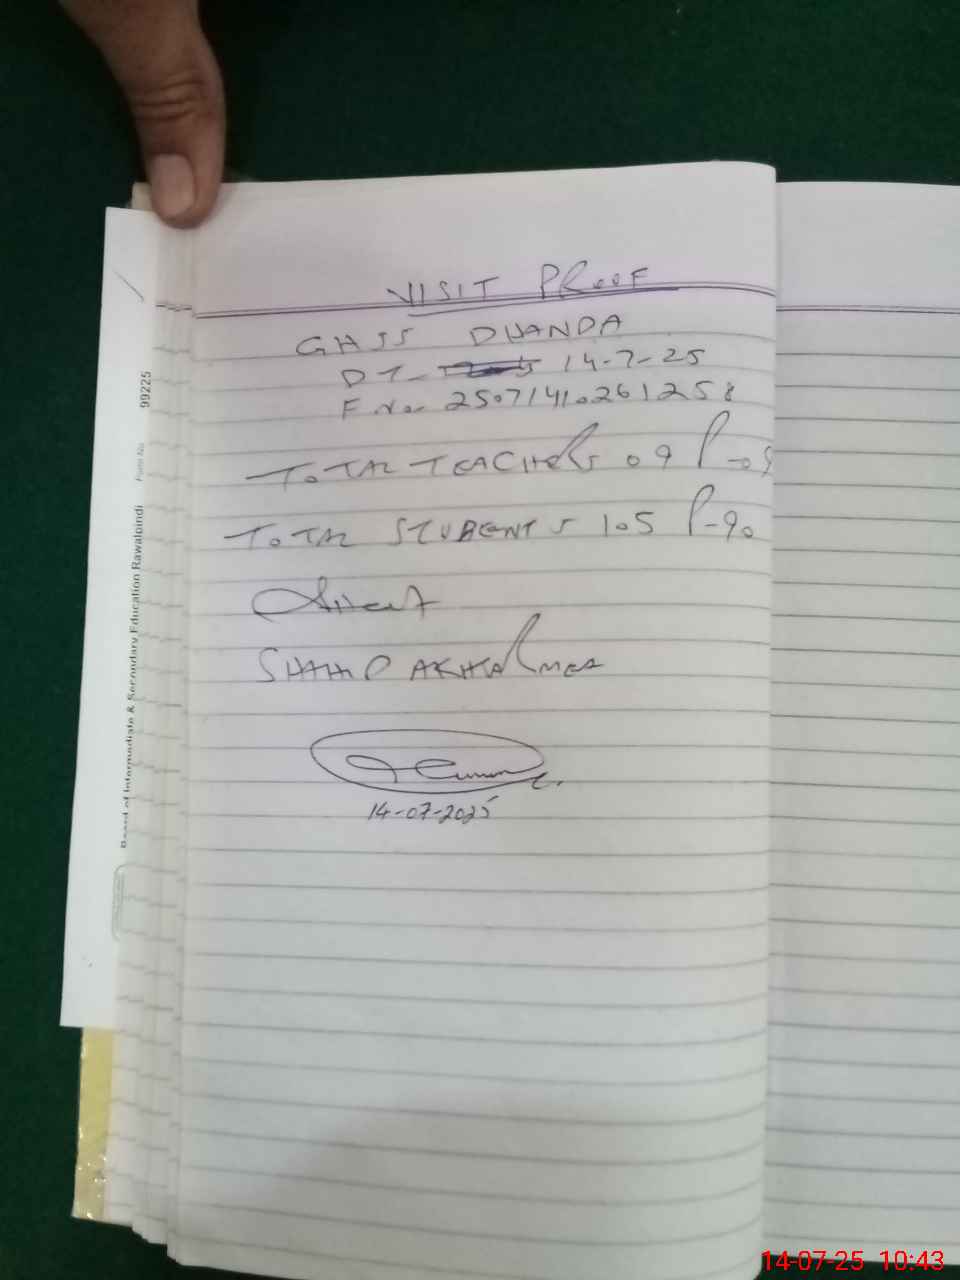 VISIT PROOF
GHSS DHANDA
DT- 14-7-25
F.No- 25071410261258
TOTAL TEACHERS 09 P-09
TOTAL STUDENTS 105 P-90
SHAHID AKHTAR MEA
14-07-2025
Board of Intermediate & Secondary Education Rawalpindi Form No 99225
14-07-25 10:43